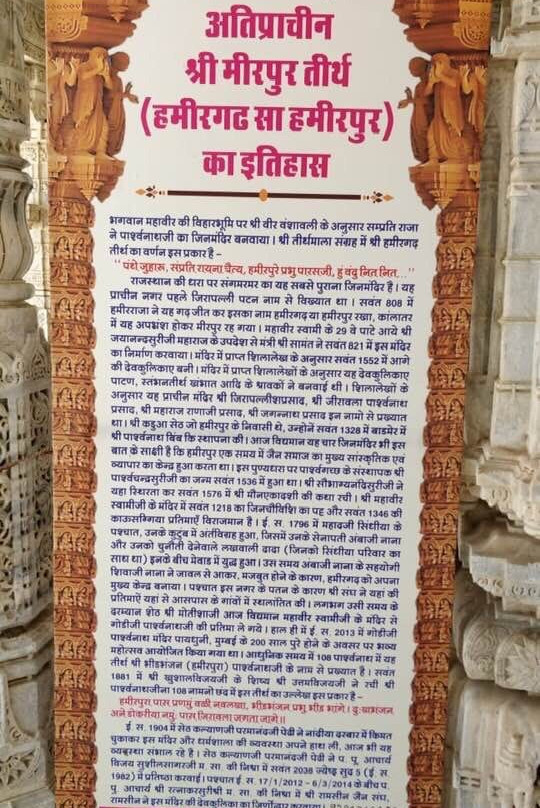 अतिप्राचीन
श्री मीरपुर तीर्थ
(हमीरगढ सा हमीरपुर)
का इतिहास
भगवान महावीर की विहारभूमि पर श्री वीर वंशावली के अनुसार सम्प्रति राजा
ने पार्श्वनाथजी का जिनमंदिर बनवाया । श्री तीर्थमाला संग्रह में श्री हमीरगढ़
तीर्थ का वर्णन इस प्रकार है –
"पंथे जुहारू, संप्रति रायना चैत्य, हमीरपुरे प्रभु पारसजी, हुं वंदु नित नित..."
राजस्थान की धरा पर संगमरमर का यह सबसे पुराना जिनमंदिर है । यह
प्राचीन नगर पहले जिरापल्ली पटन नाम से विख्यात था । सवंत 808 में
हमीरराजा ने यह गढ़ जीत कर इसका नाम हमीरगढ़ या हमीरपुर रखा, कालांतर
में यह अपभ्रंश होकर मीरपुर रह गया । महावीर स्वामी के 29 वे पाटे आये श्री
जयानन्दसुरीजी महाराज के उपदेश से मंत्री श्री सामंत ने सवंत 821 में इस मंदिर
का निर्माण करवाया । मंदिर में प्राप्त शिलालेख के अनुसार सवंत 1552 में आगे
की देवकुलिकाए बनी । मंदिर में प्राप्त शिलालेखों के अनुसार यह देवकुलिकाए
पाटण, स्तंभनतीर्थ खंभात आदि के श्रावकों ने बनवाई थी । शिलालेखों के
अनुसार यह प्राचीन मंदिर श्री जिरापल्लीशप्रसाद, श्री जीरावला पार्श्वनाथ
प्रसाद, श्री महाराज राणाजी प्रसाद, श्री जगन्नाथ प्रसाद इन नामो से प्रख्यात
था । श्री कडुआ सेठ जो हमीरपुर के निवासी थे, उन्होंने सवंत 1328 में बाडमेर में
श्री पार्श्वनाथ बिंब कि स्थापना की । आज विद्यमान यह चार जिनमंदिर भी इस
बात के साक्षी है कि हमीरपुर एक समय में जैन समाज का मुख्य सांस्कृतिक एवं
व्यापार का केन्द्र हुआ करता था । इस पुण्यधरा पर पार्श्वगच्छ के संस्थापक श्री
पार्श्वचंद्रसुरीजी का जन्म सवंत 1536 में हुआ था । श्री सौभाग्यनंदिसुरीजी ने
यहा स्थिरता कर सवंत 1576 में श्री मौनएकादशी की कथा रची । श्री महावीर
स्वामीजी के मंदिर में सवंत 1218 का जिनचौविशि का पट्ट और सवंत 1346 की
काउसग्गिया प्रतिमाऐं विराजमान है । ई. स. 1796 में महादजी सिंधीया के
पश्चात, उनके कुटुंब में अंर्तविग्रह हुआ, जिसमें उनके सेनापती अंबाजी नाना
और उनको चुनौती देनेवाले लखवाजी दादा (जिनको सिंधीया परिवार का
साथ था) इनके बीच मेवाड में युद्ध हुआ । उस समय अंबाजी नाना के सहयोगी
शिवाजी नाना ने जावल से आकर, मजबूत होने के कारण, हमीरगढ़ को अपना
मुख्य केन्द्र बनाया । पश्चात इस नगर के पतन के कारण श्री संघ ने यहां की
प्रतिमाऐं यहां से आसपास के गांवों में स्थालांतित की । लगभग उसी समय के
दरम्यान शेठ श्री मोतीशाजी आज विद्यमान महावीर स्वामीजी के मंदिर से
गोडीजी पार्श्वनाथजी की प्रतिमा ले गये । हाल ही में ई. स. 2013 में गोडीजी
पार्श्वनाथ मंदिर पायधुनी, मुम्बई के 200 साल पुरे होने के अवसर पर भव्य
महोत्सव आयोजित किया गया था । आधुनिक समय में 108 पार्श्वनाथ में यह
तीर्थ श्री भीडभंजन (हमीरपुरा) पार्श्वनाथजी के नाम से प्रख्यात है । सवंत
1881 में श्री खुशालविजयजी के शिष्य श्री उत्तमविजयजी ने रची श्री
पार्श्वनाथजीना 108 नामनो छंद में इस तीर्थ का उल्लेख इस प्रकार है –
हमीरपुरा पास प्रणमुं वळी नवलखा, भीडभंजन प्रभु भीड भांगे । दु:खभंजन
अने डोकरीया नमुं: पास जिरावला जगता जागे ।।
ई. स. 1904 में सेठ कल्याणजी परमानंदजी पेढी ने नांदीया दरबार में किमत
चुकाकर इस मंदिर और धर्मशाला की व्यवस्था अपने हाथ ली, आज भी यह
व्यवस्था संभाल रहे है । सेठ कल्याणजी परमानंदजी पेढी ने प. पू. आचार्य
विजय सुशीलसागरजी म. सा. की निश्रा में सवंत 2038 ज्येष्ठ सुद 5 (ई. स.
1982) में प्रतिष्ठा करवाई। पश्चात ई. स. 17/1/2012 – 6/3/2014 के बीच प.
पु. आचार्य श्री रत्नाकरसुरीश्री म. सा. की निश्रा में श्री रामसीन जैन संघ,
रामसीन ने इस मंदिर की देवकुलिका का जिर्णोद्धार करवाया ।